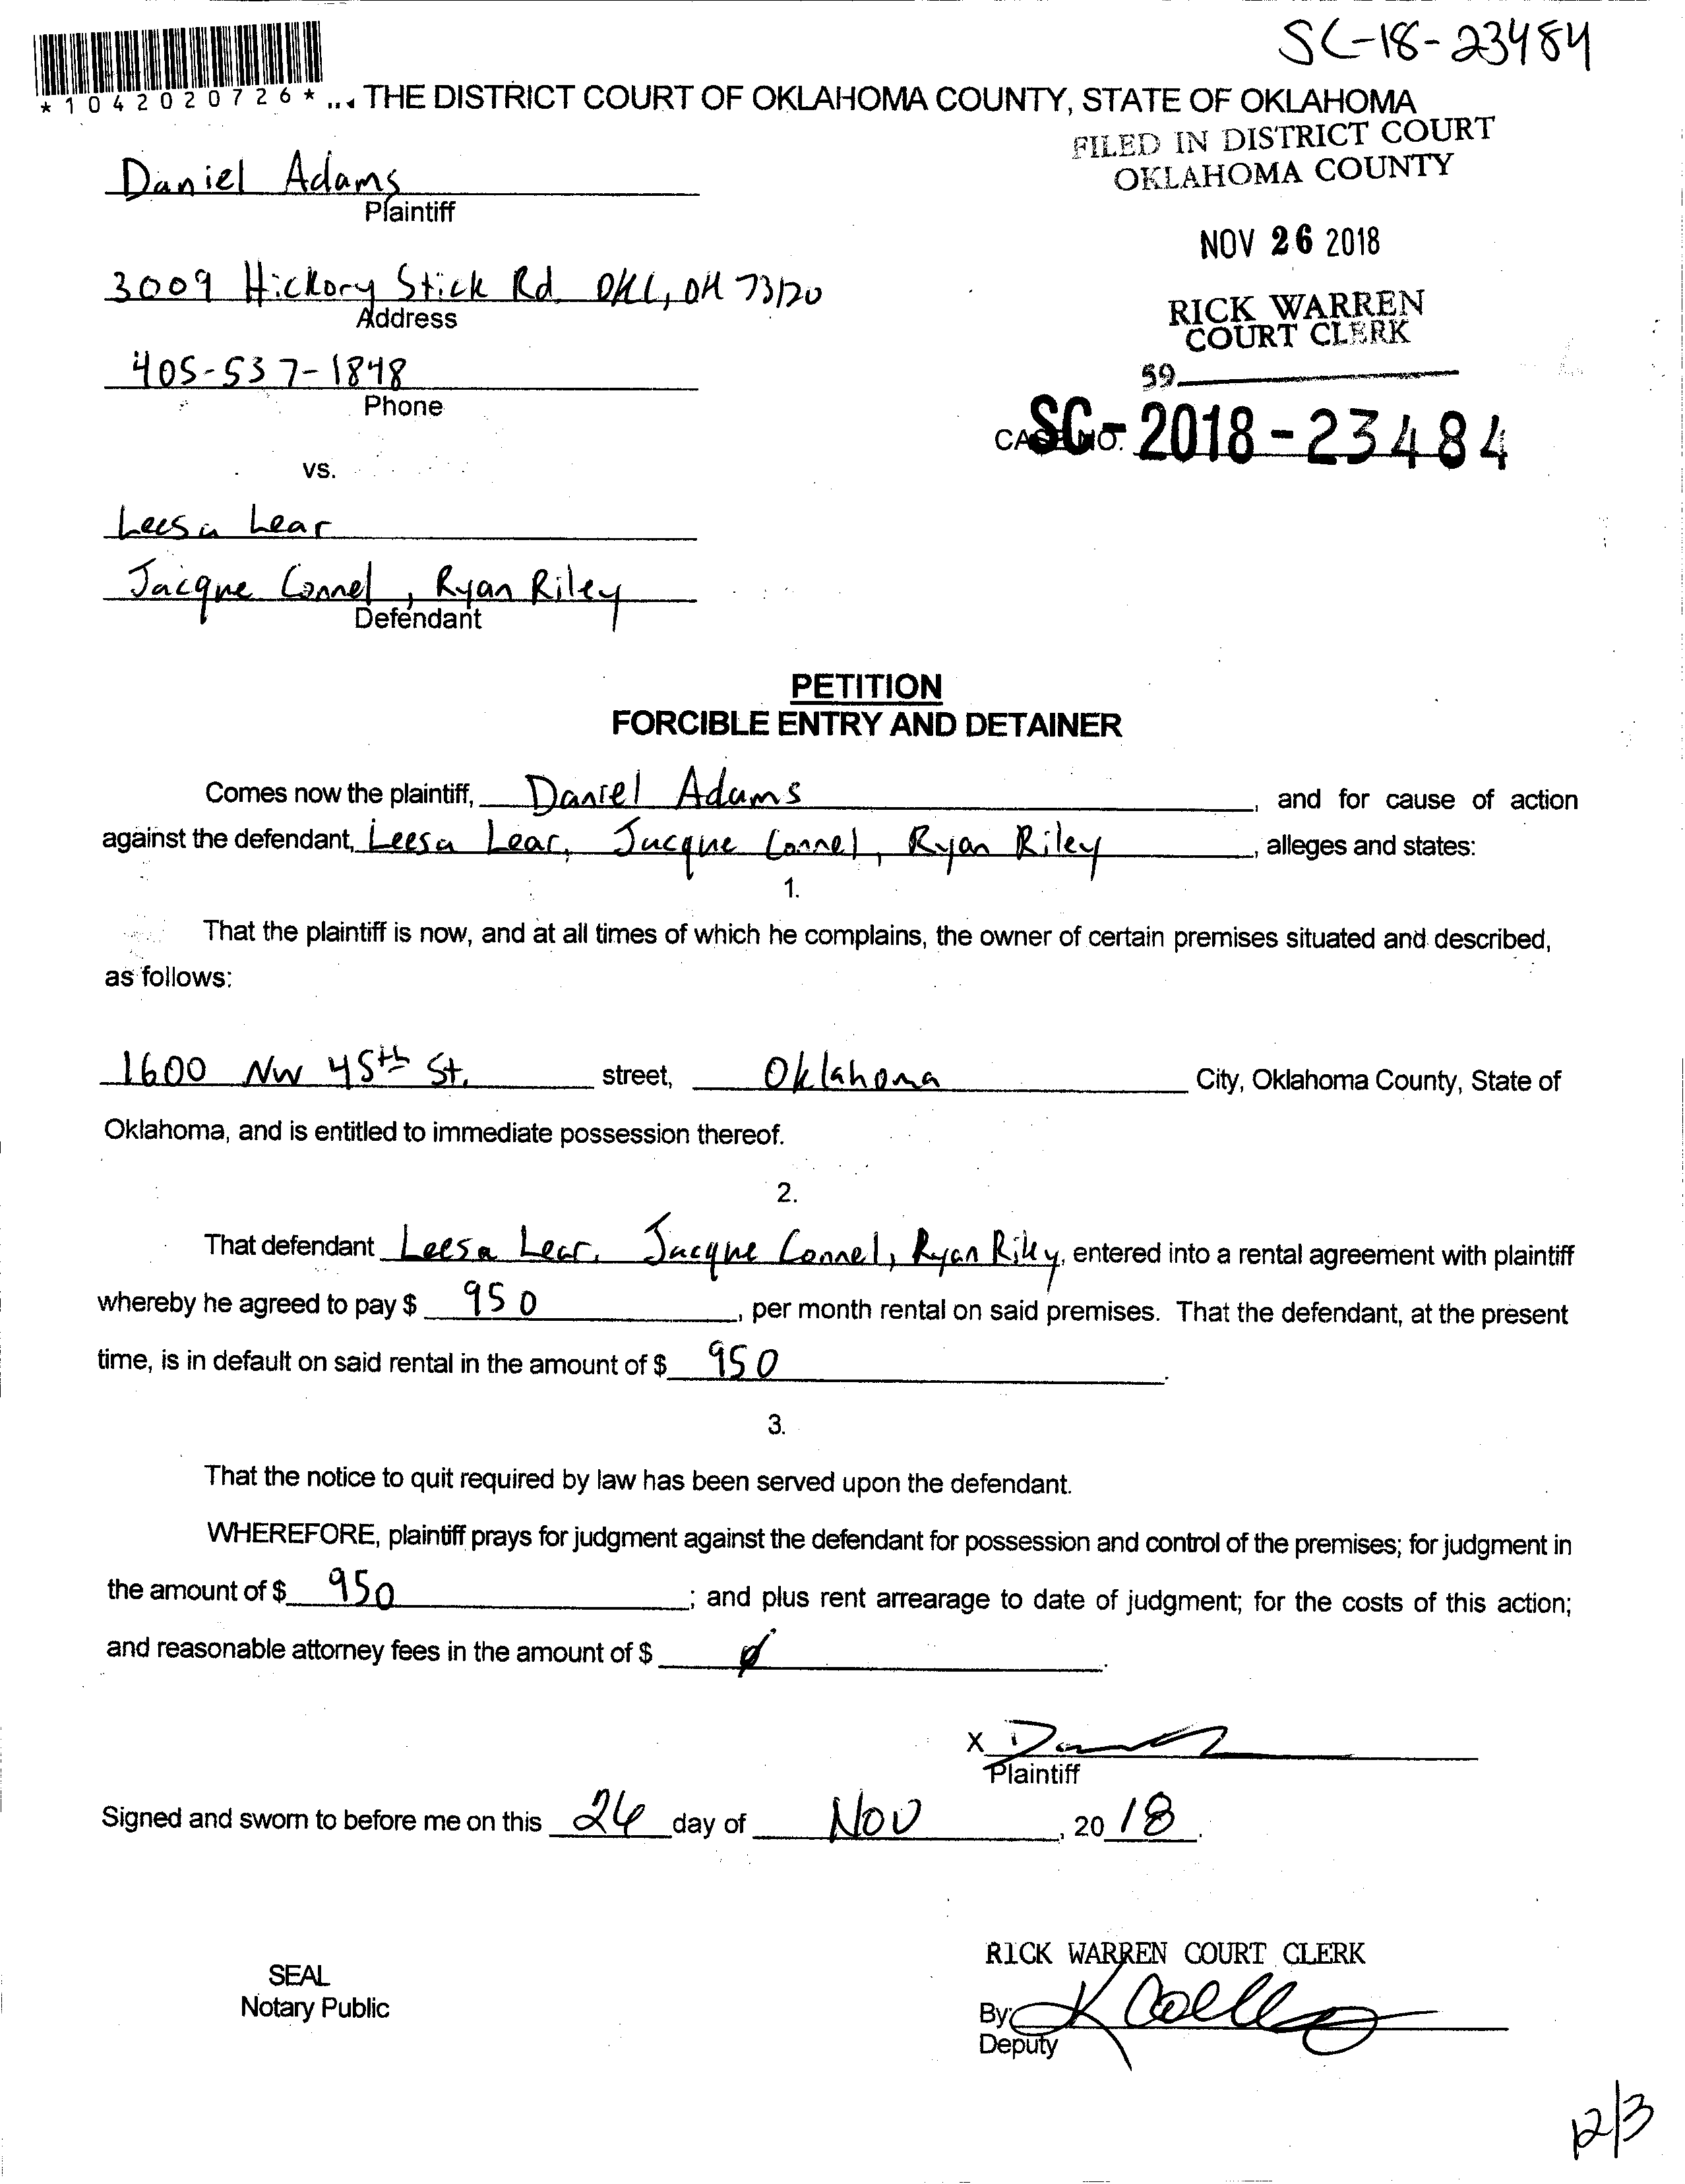 SC-18-23484
*1042020726* ... THE DISTRICT COURT OF OKLAHOMA COUNTY, STATE OF OKLAHOMA
FILED IN DISTRICT COURT
OKLAHOMA COUNTY
Daniel Adams
Plaintiff
NOV 26 2018
3009 Hickory Stick Rd OKC, OK 73120
Address
RICK WARREN
COURT CLERK
405-537-1848
Phone
59
CASE NO. SC-2018-23484
vs.
Leesa Lear
Jacque Connel, Ryan Riley
Defendant
PETITION
FORCIBLE ENTRY AND DETAINER
Comes now the plaintiff, Daniel Adams, and for cause of action
against the defendant, Leesa Lear, Jacque Connel, Ryan Riley, alleges and states:
1.
That the plaintiff is now, and at all times of which he complains, the owner of certain premises situated and described,
as follows:
1600 NW 45th St. street, Oklahoma City, Oklahoma County, State of
Oklahoma, and is entitled to immediate possession thereof.
2.
That defendant Leesa Lear, Jacque Connel, Ryan Riley, entered into a rental agreement with plaintiff
whereby he agreed to pay $ 950, per month rental on said premises. That the defendant, at the present
time, is in default on said rental in the amount of $ 950.
3.
That the notice to quit required by law has been served upon the defendant.
WHEREFORE, plaintiff prays for judgment against the defendant for possession and control of the premises; for judgment in
the amount of $ 950; and plus rent arrearage to date of judgment; for the costs of this action;
and reasonable attorney fees in the amount of $ ø.
X
Plaintiff
Signed and sworn to before me on this 26 day of Nov, 2018.
RICK WARREN COURT CLERK
SEAL
Notary Public
By:
Deputy
12/3